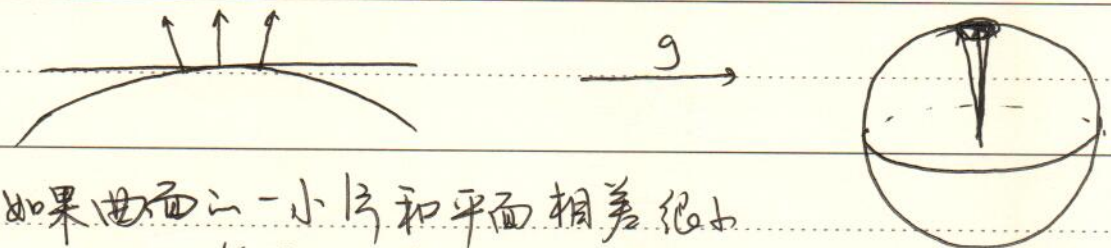 g
如果曲面的一小片和平面相差很小